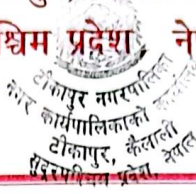 श्चिम प्रदेश, ने
टीकापुर नगरपालिका
नगर कार्यपालिकाको
टीकापुर, कैलाली
सुदूरपश्चिम प्रदेश, नेपाल